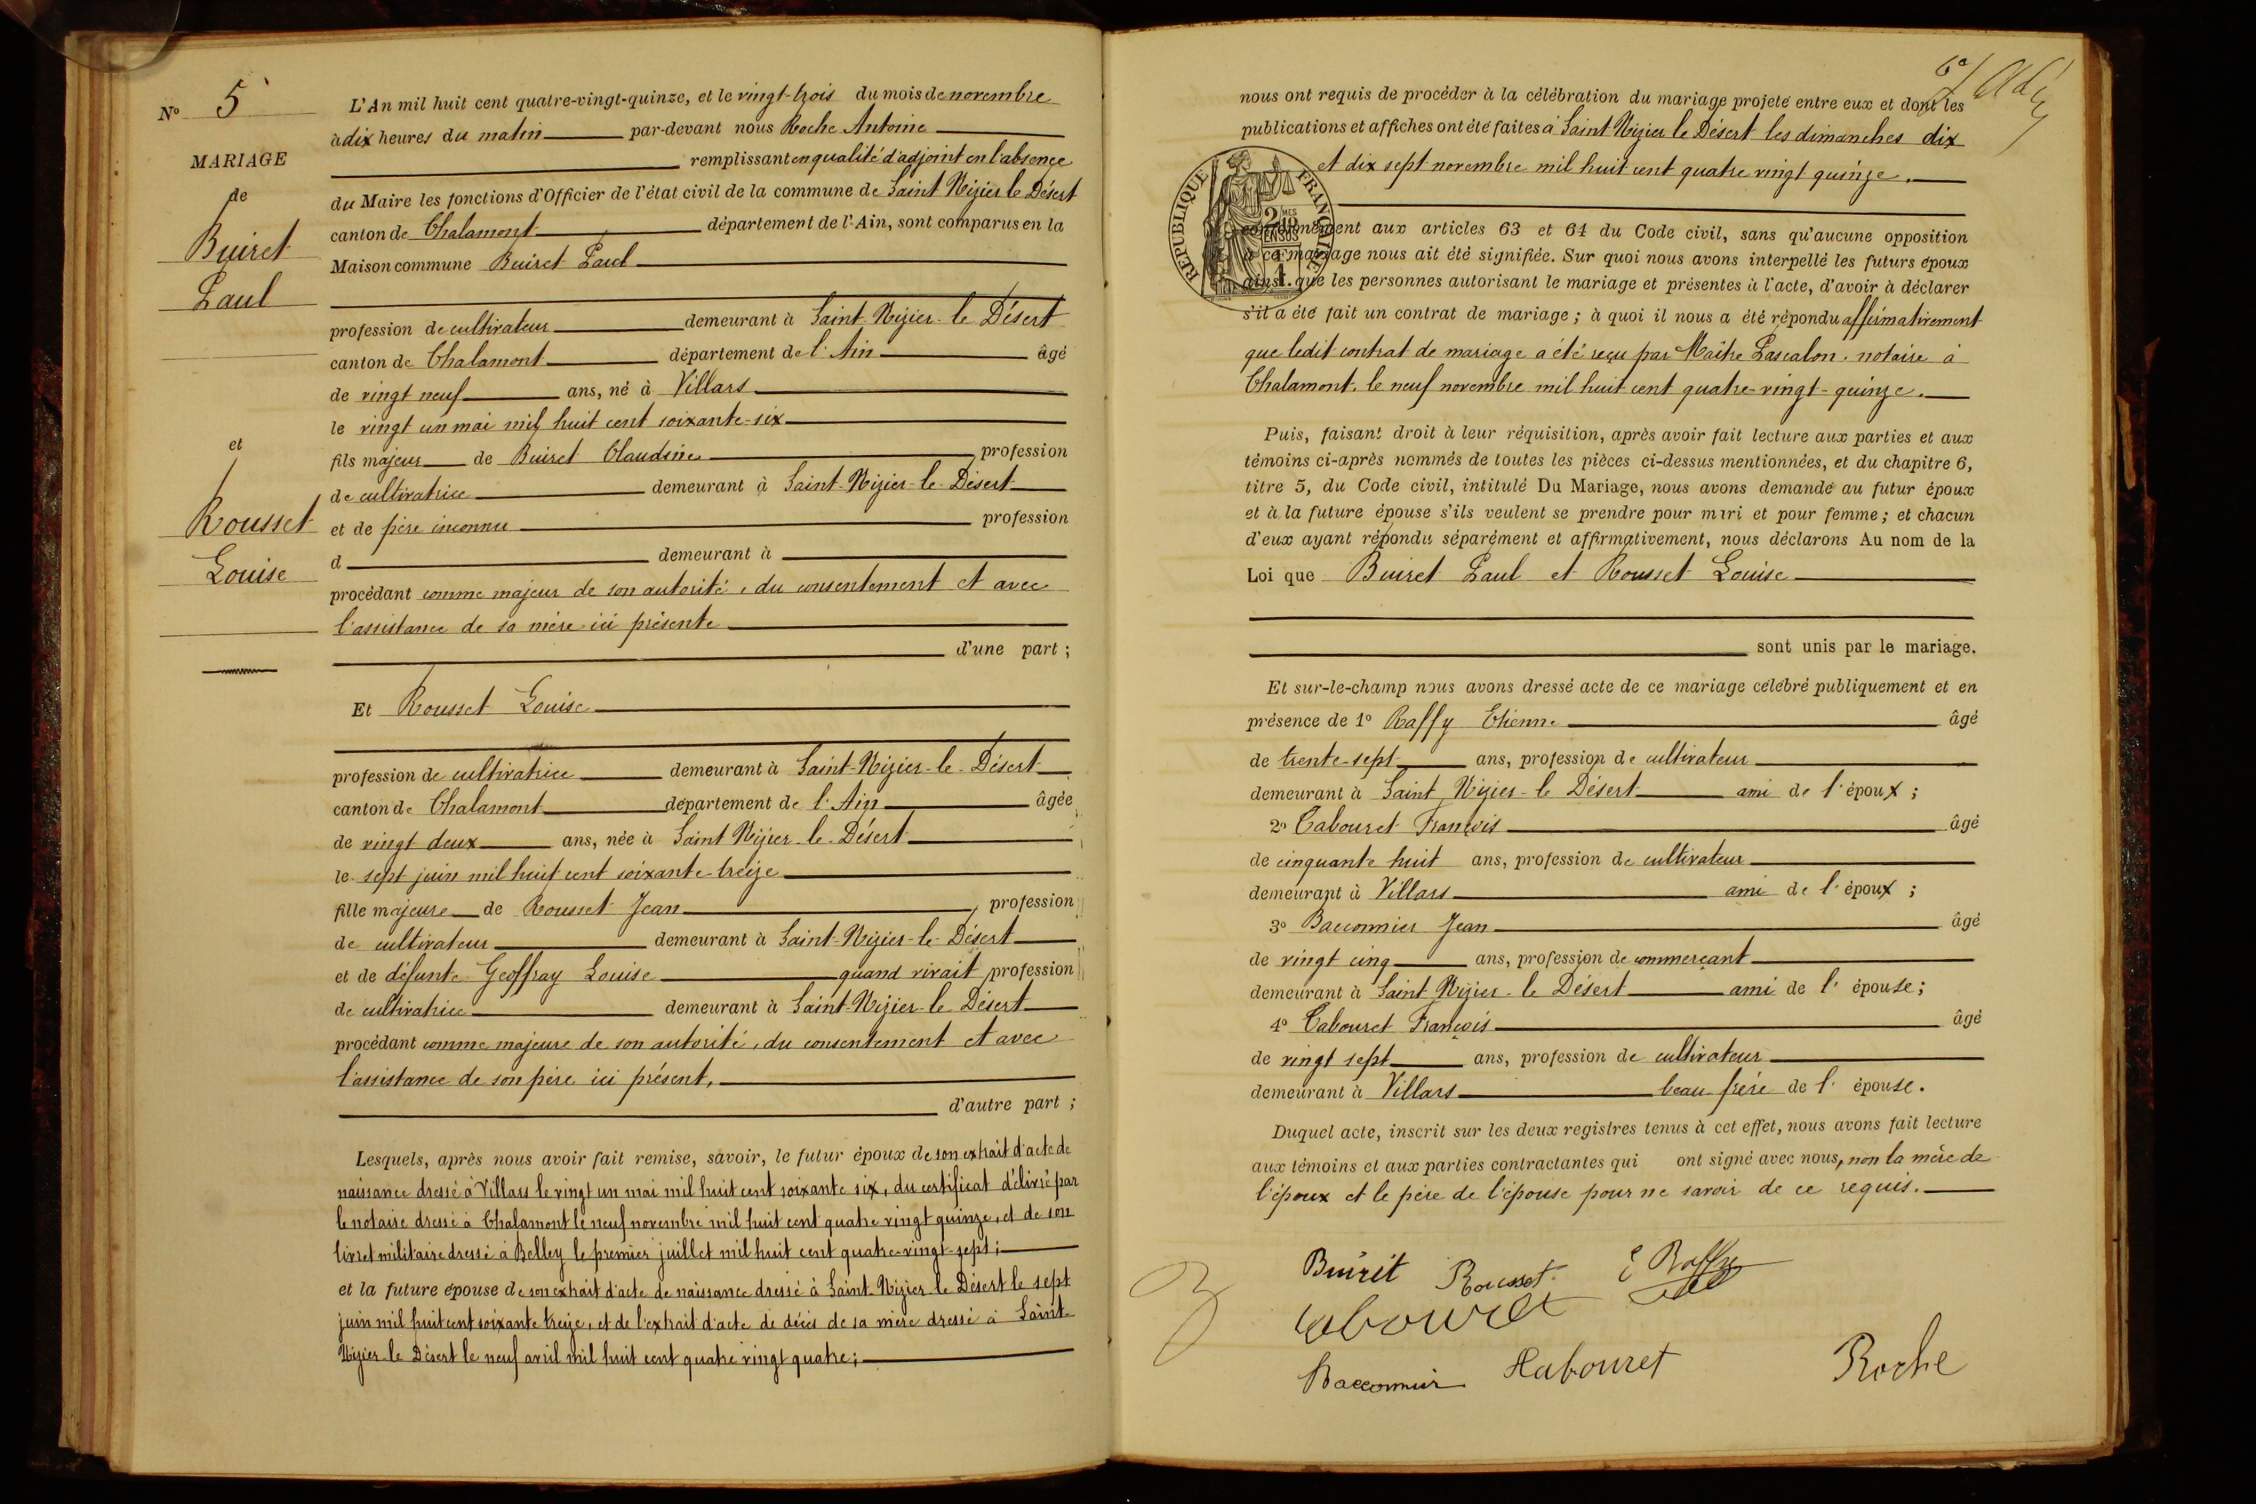 N° 5
MARIAGE
de
Buiret
Paul
et
Rousset
Louise
L'An mil huit cent quatre-vingt-quinze, et le vingt-trois du mois de novembre
à dix heures du matin par-devant nous Roche Antoine
remplissant en qualité d'adjoint en l'absence
du Maire les fonctions d'Officier de l'état civil de la commune de Saint Nizier le Désert
canton de Chalamont département de l'Ain, sont comparus en la
Maison commune Buiret Paul
profession de cultivateur demeurant à Saint-Nizier-le Désert
canton de Chalamont département de l'Ain âgé
de vingt neuf ans, né à Villars
le vingt un mai mil huit cent soixante-six
fils majeur de Buiret Claudine profession
de cultivatrice demeurant à Saint-Nizier-le-Désert
et de père inconnu profession
d demeurant à
procédant comme majeur de son autorité, du consentement et avec
l'assistance de sa mère ici présente
d'une part ;
Et Rousset Louise
profession de cultivatrice demeurant à Saint-Nizier-le-Désert
canton de Chalamont département de l'Ain âgée
de vingt deux ans, née à Saint Nizier-le-Désert
le sept juin mil huit cent soixante-treize
fille majeure de Rousset Jean profession
de cultivateur demeurant à Saint-Nizier-le-Désert
et de défunte Geoffray Louise quand vivait profession
de cultivatrice demeurant à Saint-Nizier-le Désert
procédant comme majeure de son autorité, du consentement et avec
l'assistance de son père ici présent,
d'autre part ;
Lesquels, après nous avoir fait remise, savoir, le futur époux de son extrait d'acte de
naissance dressé à Villars le vingt un mai mil huit cent soixante six, du certificat délivré par
le notaire dressé à Chalamont le neuf novembre mil huit cent quatre vingt quinze, et de son
livret militaire dressé à Belley le premier juillet mil huit cent quatre-vingt-sept ;
et la future épouse de son extrait d'acte de naissance dressé à Saint-Nizier-le Désert le sept
juin mil huit cent soixante treize, et de l'extrait d'acte de décès de sa mère dressé à Saint-
Nizier-le Désert le neuf avril mil huit cent quatre vingt quatre ;
nous ont requis de procéder à la célébration du mariage projeté entre eux et dont les
publications et affiches ont été faites à Saint Nizier le Désert les dimanches dix
et dix sept novembre mil huit cent quatre vingt quinze.
REPUBLIQUE FRANÇAISE
conformément aux articles 63 et 64 du Code civil, sans qu'aucune opposition
à ce mariage nous ait été signifiée. Sur quoi nous avons interpellé les futurs époux
ainsi que les personnes autorisant le mariage et présentes à l'acte, d'avoir à déclarer
s'il a été fait un contrat de mariage ; à quoi il nous a été répondu affirmativement
que ledit contrat de mariage a été reçu par Maître Pascalon, notaire à
Chalamont, le neuf novembre mil huit cent quatre-vingt-quinze.
Puis, faisant droit à leur réquisition, après avoir fait lecture aux parties et aux
témoins ci-après nommés de toutes les pièces ci-dessus mentionnées, et du chapitre 6,
titre 5, du Code civil, intitulé Du Mariage, nous avons demandé au futur époux
et à la future épouse s'ils veulent se prendre pour mari et pour femme ; et chacun
d'eux ayant répondu séparément et affirmativement, nous déclarons Au nom de la
Loi que Buiret Paul et Rousset Louise
sont unis par le mariage.
Et sur-le-champ nous avons dressé acte de ce mariage célébré publiquement et en
présence de 1° Raffy Etienne âgé
de trente-sept ans, profession de cultivateur
demeurant à Saint Nizier-le Désert ami de l'époux ;
2° Cabouret François âgé
de cinquante huit ans, profession de cultivateur
demeurant à Villars ami de l'époux ;
3° Bacconnier Jean âgé
de vingt cinq ans, profession de commerçant
demeurant à Saint Nizier-le Désert ami de l'épouse ;
4° Cabouret François âgé
de vingt sept ans, profession de cultivateur
demeurant à Villars beau frère de l'épouse.
Duquel acte, inscrit sur les deux registres tenus à cet effet, nous avons fait lecture
aux témoins et aux parties contractantes qui ont signé avec nous, non la mère de
l'époux et le père de l'épouse pour ne savoir de ce requis.
Buirèt Rousset E Raffy
Cabouret
Bacconnier Cabouret Roche